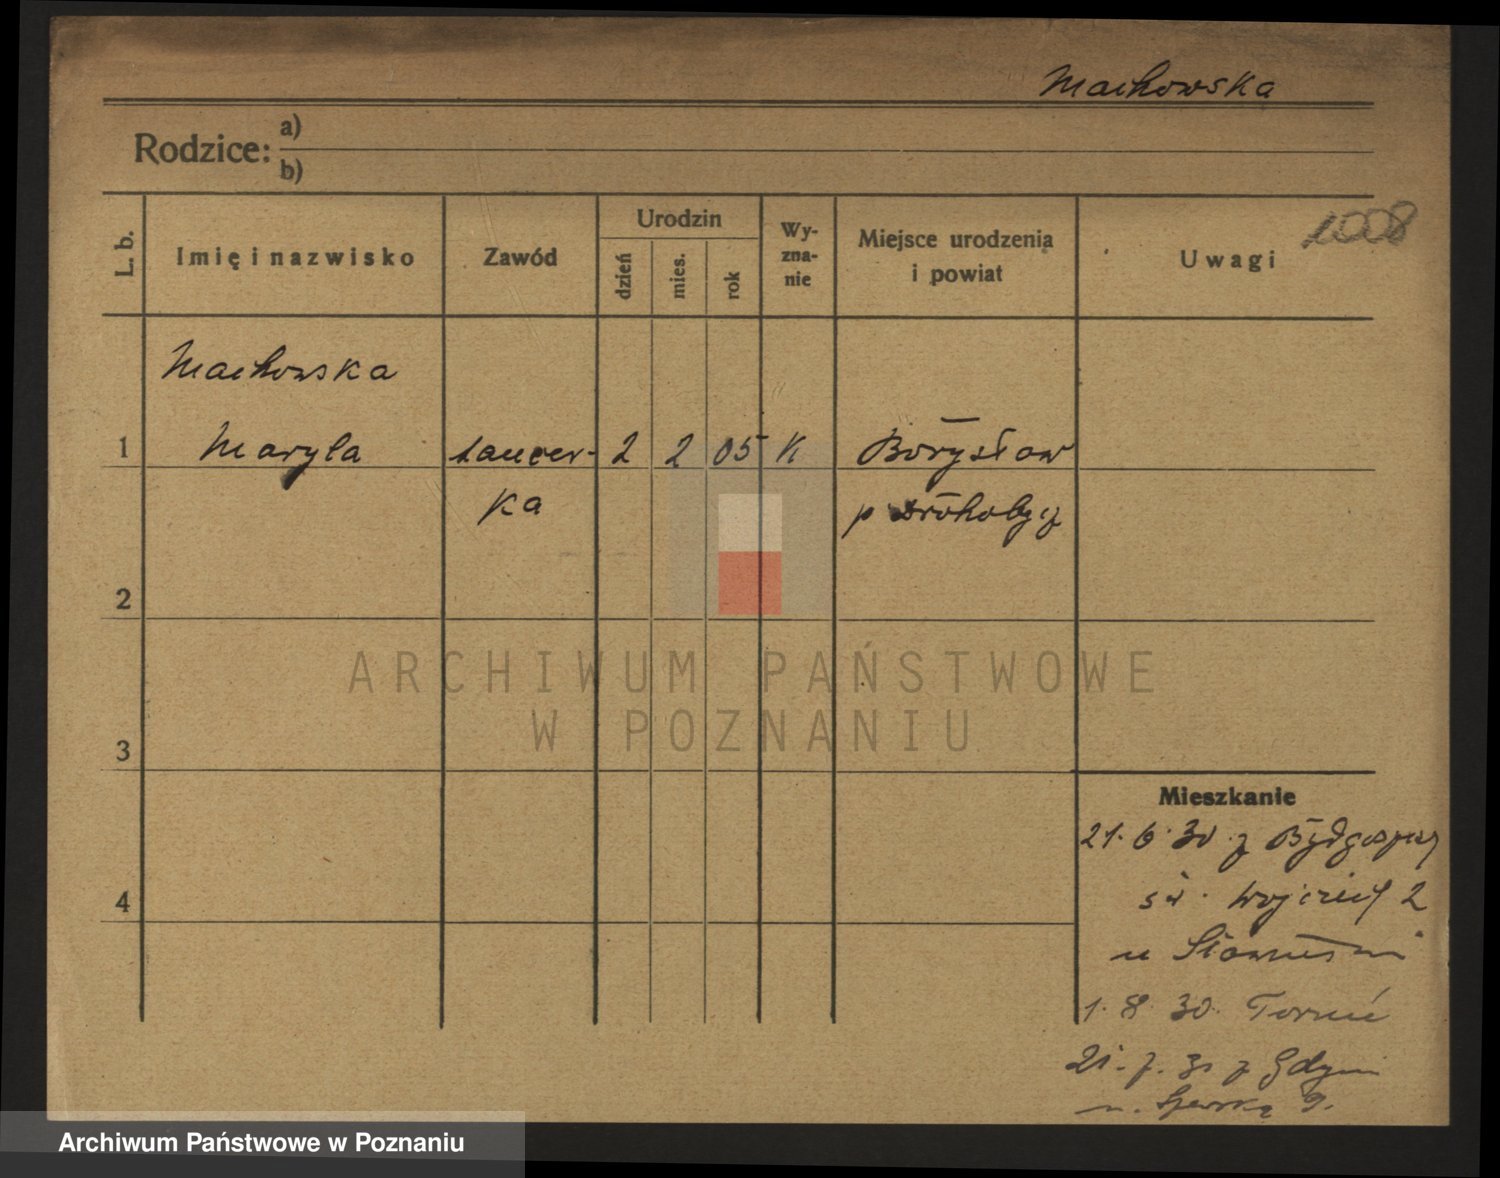 Machowska
Rodzice: a)
b)
L. b.
Imię i nazwisko
Zawód
Urodzin
dzień
mies.
rok
Wy-
zna-
nie
Miejsce urodzenia
i powiat
Uwagi
1008
Machowska
1 Maryla tancer- 2 2 05 K Borysław
ka p Drohobycz
2
3
4
Mieszkanie
21. 6. 30 z Bydgoszczy
św. Wojciech 2
u
1. 8. 30. Toruń
21. 7. 31 z Gdyni
9.
ARCHIWUM PAŃSTWOWE
W POZNANIU
Archiwum Państwowe w Poznaniu